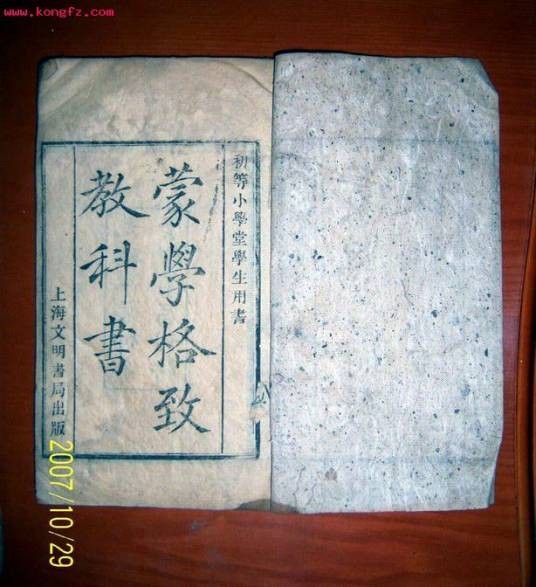 www.kongfz.com
初等小學堂學生用書
蒙學格致
教科書
上海文明書局出版
2007/10/29